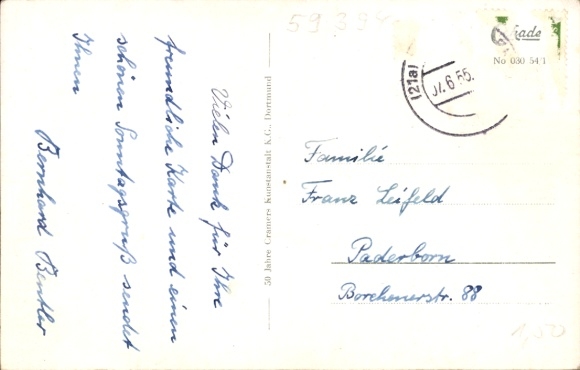 Vielen Dank für Ihre
freundliche Karte und einen
schönen Sonntagsgruß sendet
Ihnen
Bernhard Beutler
50 Jahre Cramers Kunstanstalt K.G., Dortmund
59394
No 030 54/1
(21a)
6.55.
Familie
Franz Leifeld
Paderborn
Borchenerstr. 88
1,50